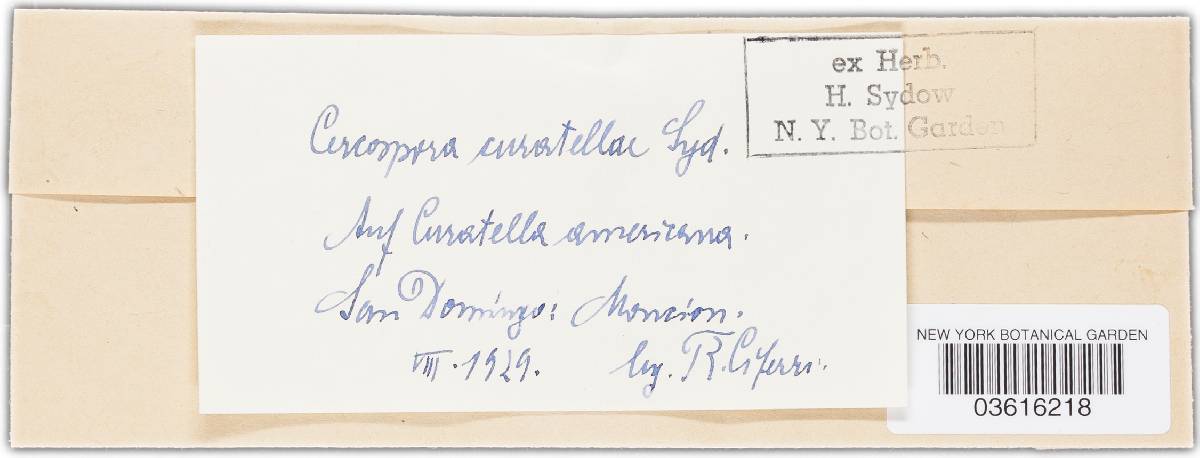 ex Herb.
H. Sydow
N. Y. Bot. Garden
Cercospora curatellae Syd.
Auf Curatella americana.
San Domingo: Moncion.
VIII. 1929. leg. R. Ciferri.
NEW YORK BOTANICAL GARDEN
03616218